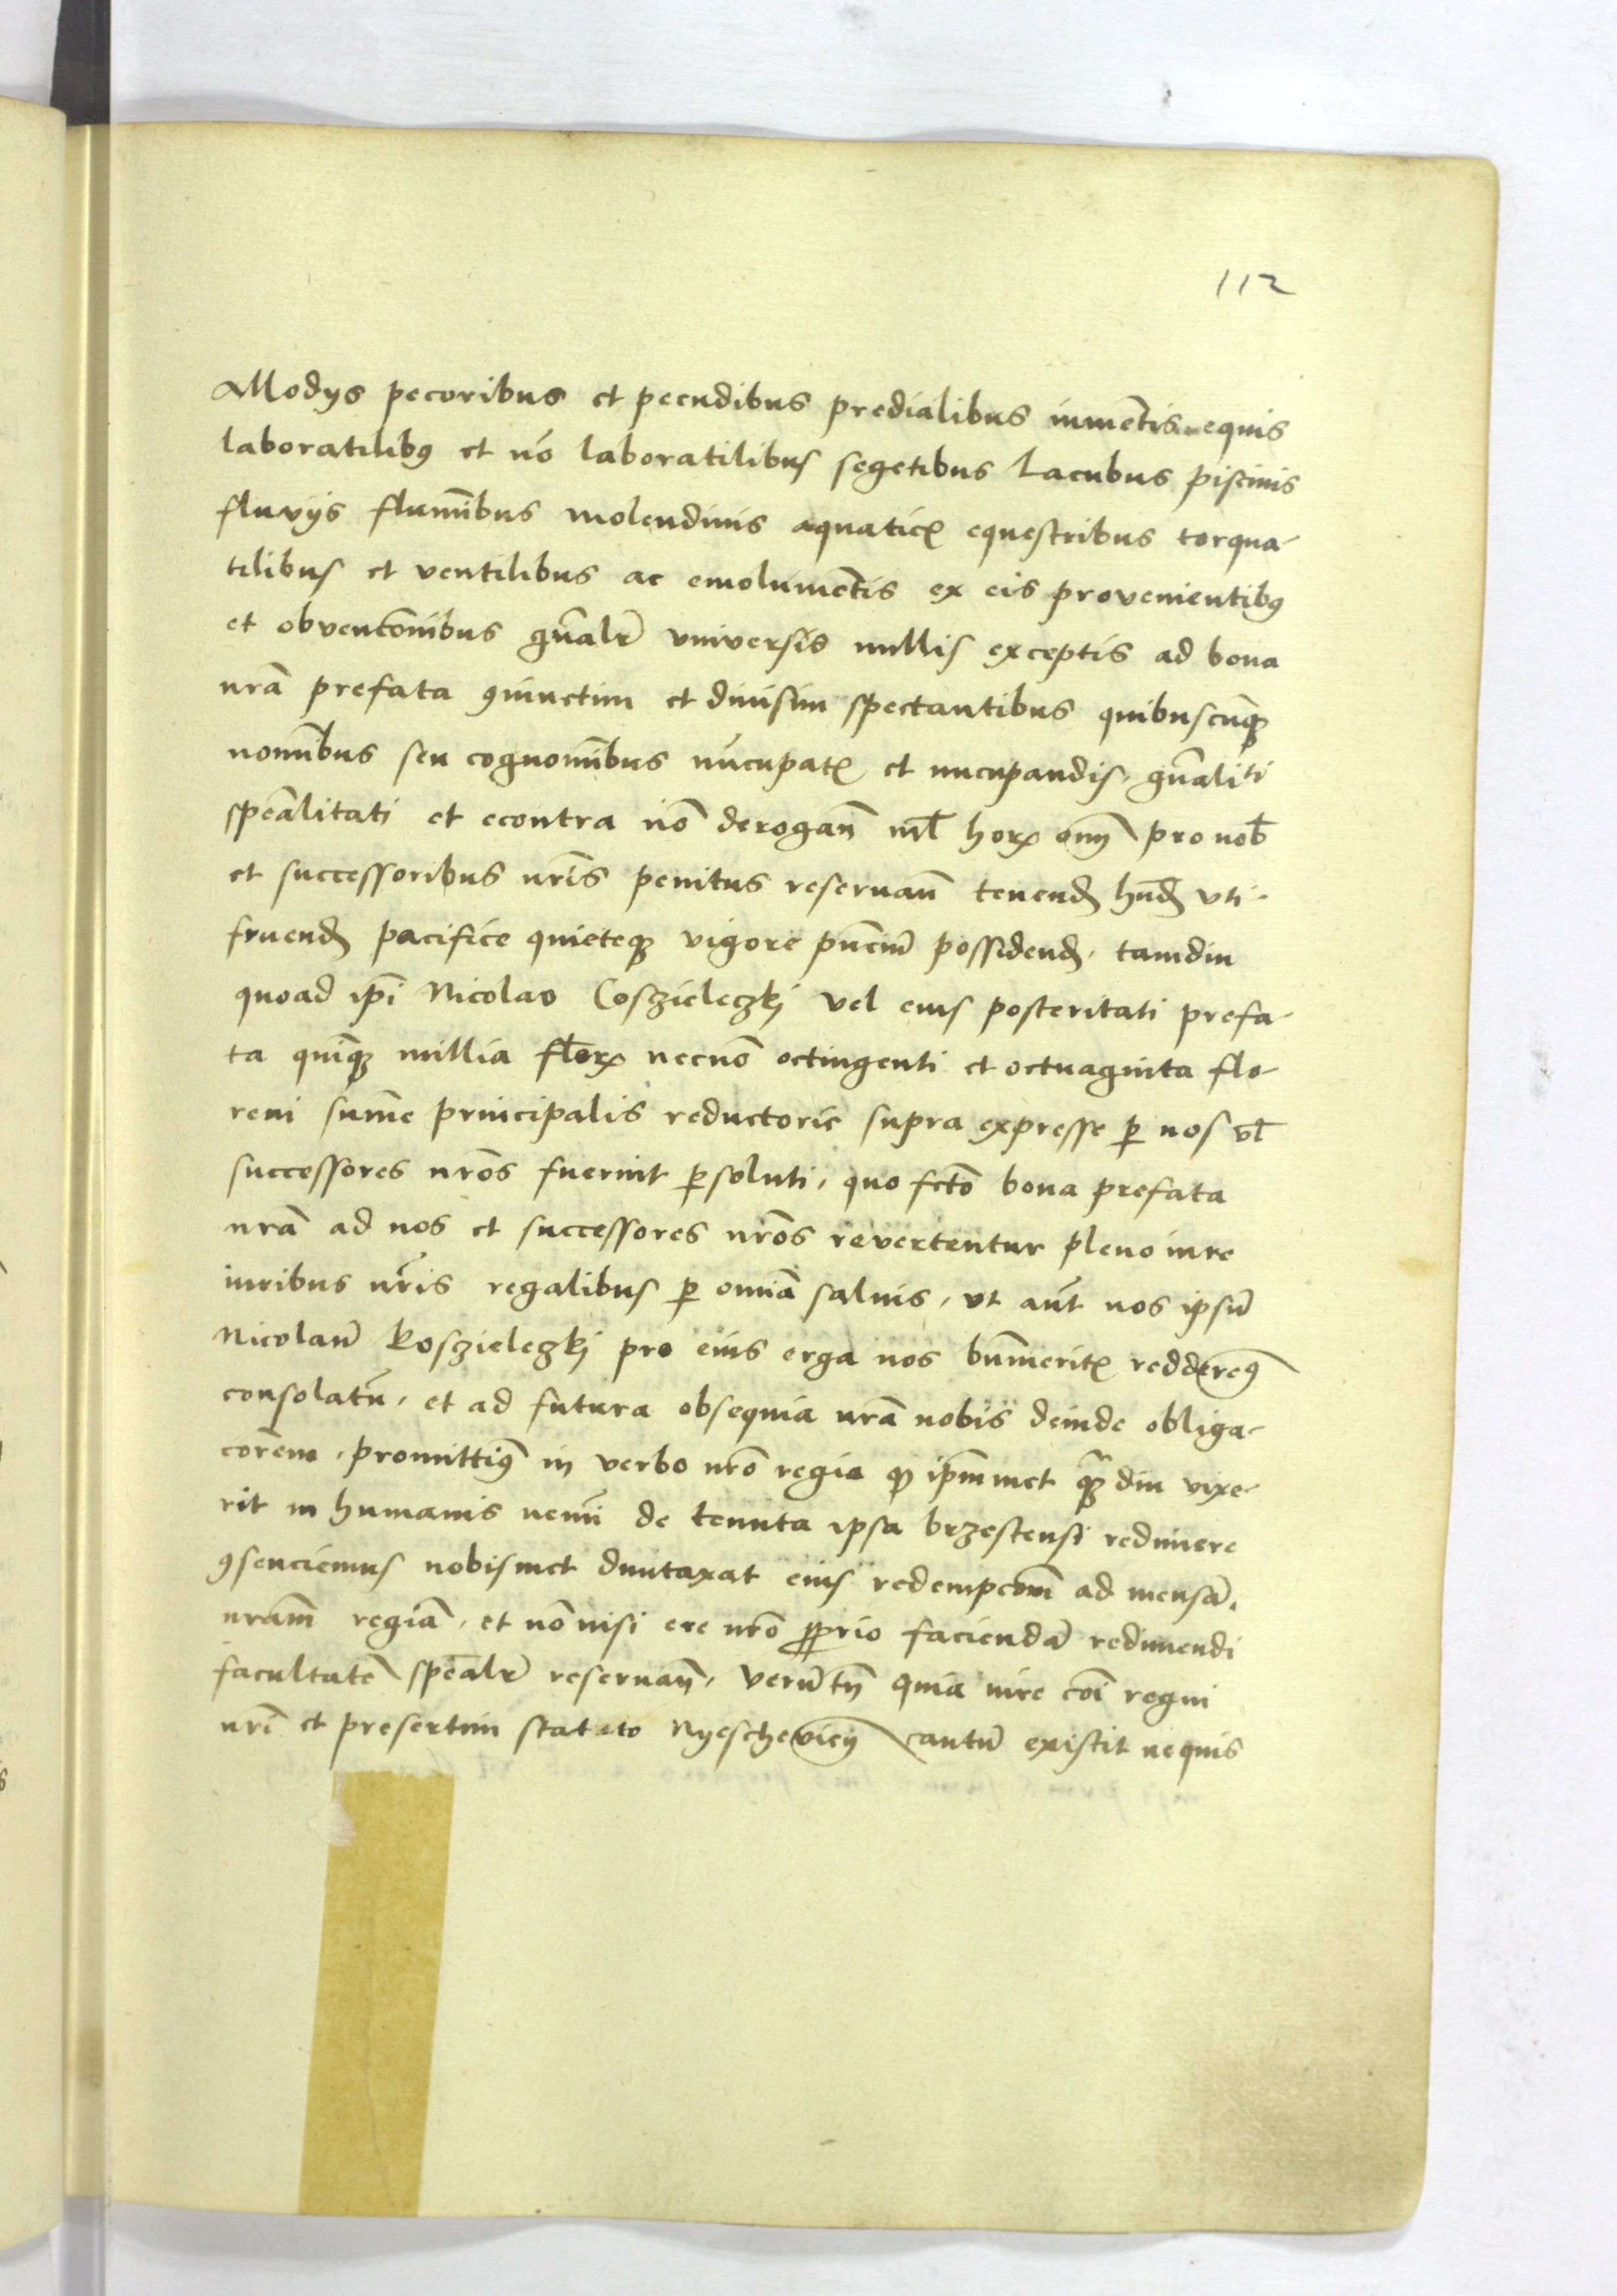 112
Modÿs pecoribus et pecudibus predialibus iumētis equis
laboratilibꝰ et nō laboratilibus segetibus Lacubus piscinis
fluvÿs flumībus molendinis aquaticꝭ equestribus torqua-
tilibus et ventilibus ac emolumētis ex eis provenientibꝰ
et obventōnibus gn̄alr̄ universis nullis exceptis ad bona
nr̄a prefata ꝯiunctim et divisim spectantibus quibuscūqꝫ
nomībus seu cognomībus nūcupatꝭ et nucupandis, gn̄aliti
spēalitati et econtra nō derogan̄ nil̄ horꝝ om̄ pro nob̄
et successoribus nr̄is penitus reservan̄ tenend̄ hn̄d̄ uti-
fruend̄ pacifice quieteqꝫ vigore pn̄ciū possidend̄, tamdiu
quoad ip̄i Nicolao Cosczieleczkj vel eius posteritati prefa-
ta quīqꝫ millia flōrꝝ necnō octingenti et octuaginta flo-
reni sum̄e principalis reductorie supra expresse ꝑ nos vl̄
successores nr̄os fuerint ꝑsoluti, quo fct̄o bona prefata
nr̄a ad nos et successores nr̄os revertentur pleno iure
iuribus nr̄is regalibus ꝑ om̄ia salvis, ut aūt nos ipsū
Nicolaū Koszieleczkj pro eius erga nos bn̄meritꝭ redderemꝰ
consolatū, et ad futura obsequia nr̄a nobis deinde obliga-
corem, promittimꝰ in verbo nr̄o regio ꝙ ip̄mmet qꝫdiu vixe-
rit in humanis nemī de tenuta ipsa brzestensi redimere
ꝯsenciemus nobismet duntaxat eius redempcōm̄ ad mensā
nr̄am regiā, et nō nisi ere nr̄o ꝓprio faciendā redimendi
facultatē spēalr̄ reservan̄, verūtn̄ quia iure cōi regni
nr̄i et presertim statuto Nyeschevicȳ cautū existit nequis